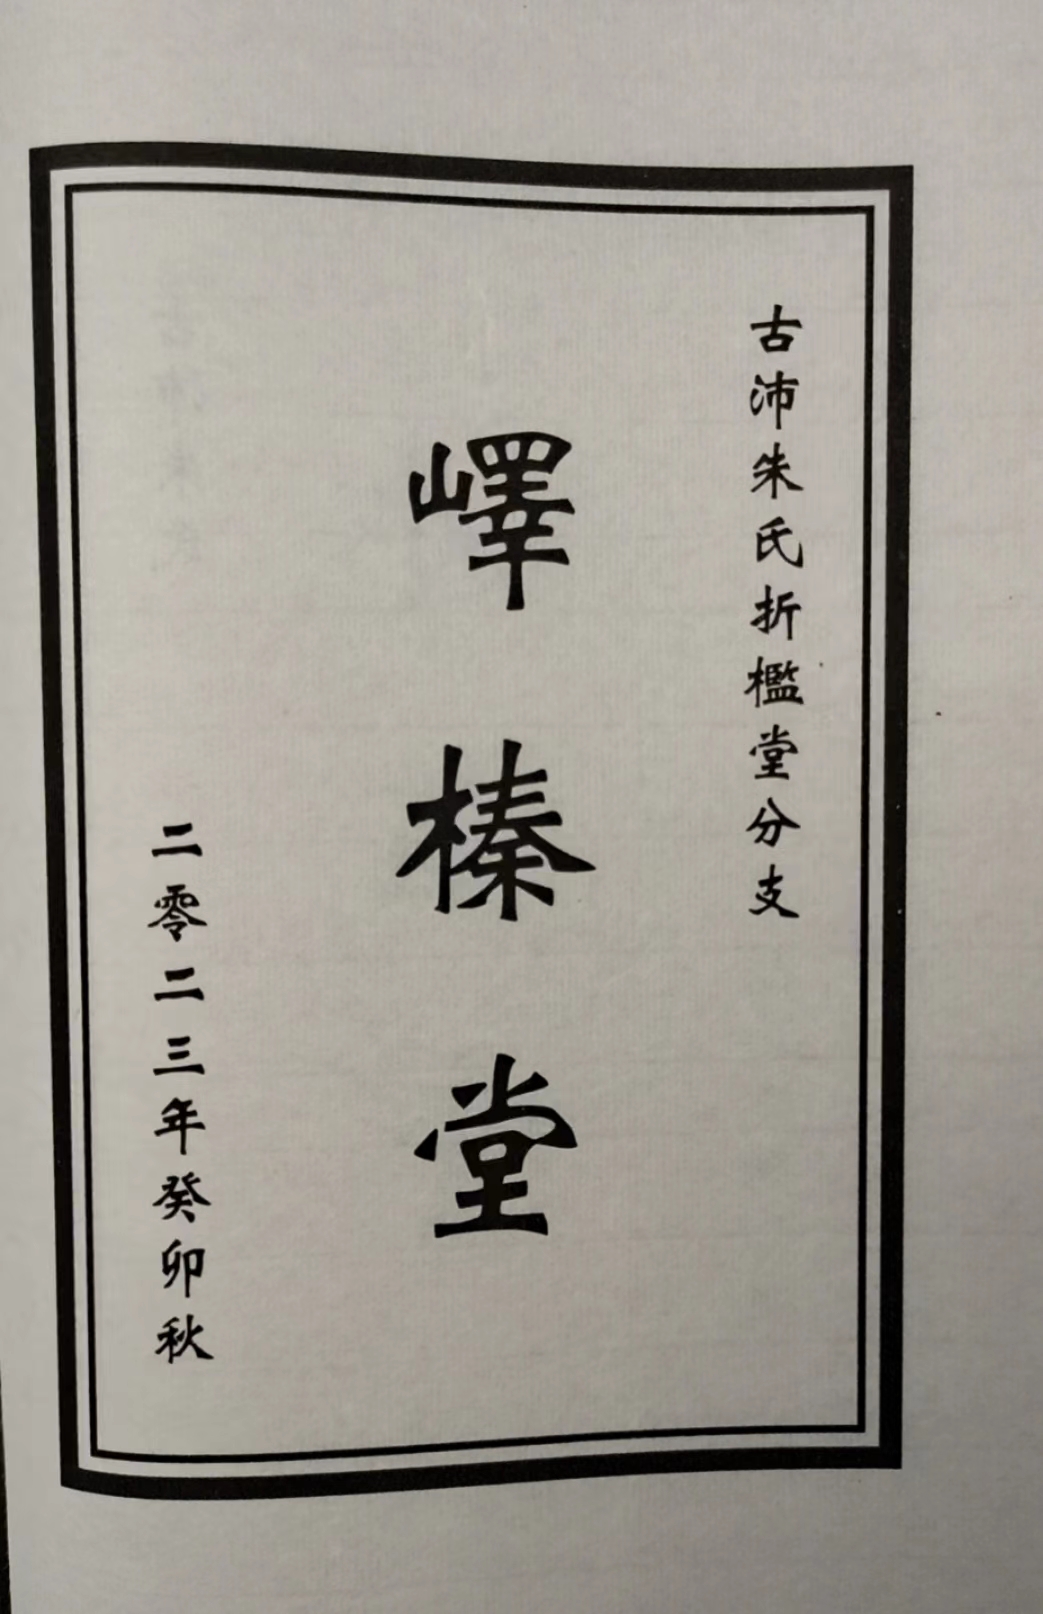 古沛朱氏折檻堂分支
嶧榛堂
二零二三年癸卯秋